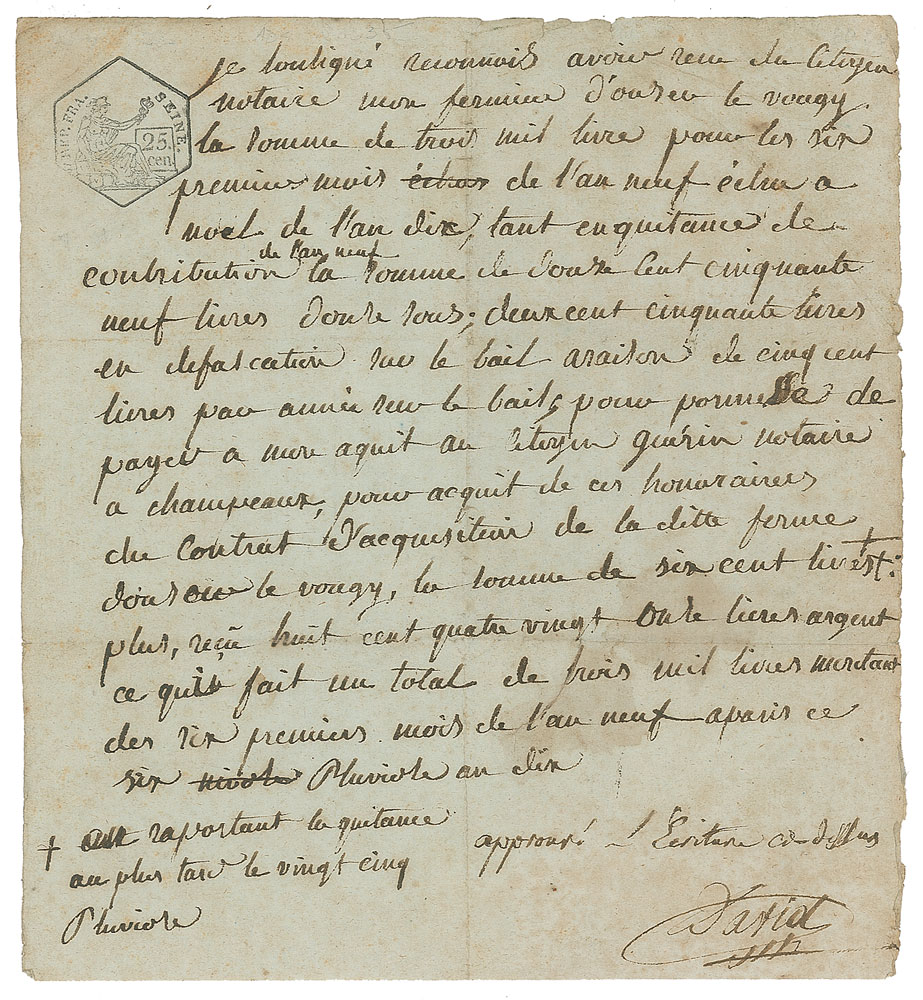 REP. FRA.
SEINE.
25.
cen
je souligné reconnois avoir recu du Citoyen
notaire mon fermier d'ouseu le vougy
la somme de trois mil livre pour les six
premiers mois échus de l'an neuf échu a
noel de l'an dix, tant en quitance de
de l'an neuf
contribution la somme de douze Cent cinquante
neuf livres douse sous; deux cent cinquante livres
en defalcation sur le bail a raison de cinq cent
livres par année sur le bail, pour pormesse de
payer a mon aquit au Citoyen guérin notaire
a champeaux, pour acquit de ces honoraires
du Contrat d'acquisition de la ditte ferme
le vougy, la somme de six cent livres +:
plus, reçu huit cent quatre vingt onse livres argent
ce qui fait un total de trois mil livres montant
des six premiers mois de l'an neuf a paris ce
six nivose Pluviose an dix
+ en raportant la quitance
au plus tard le vingt cinq
Pluviose
approuvé L'Ecriture ci dessus
David